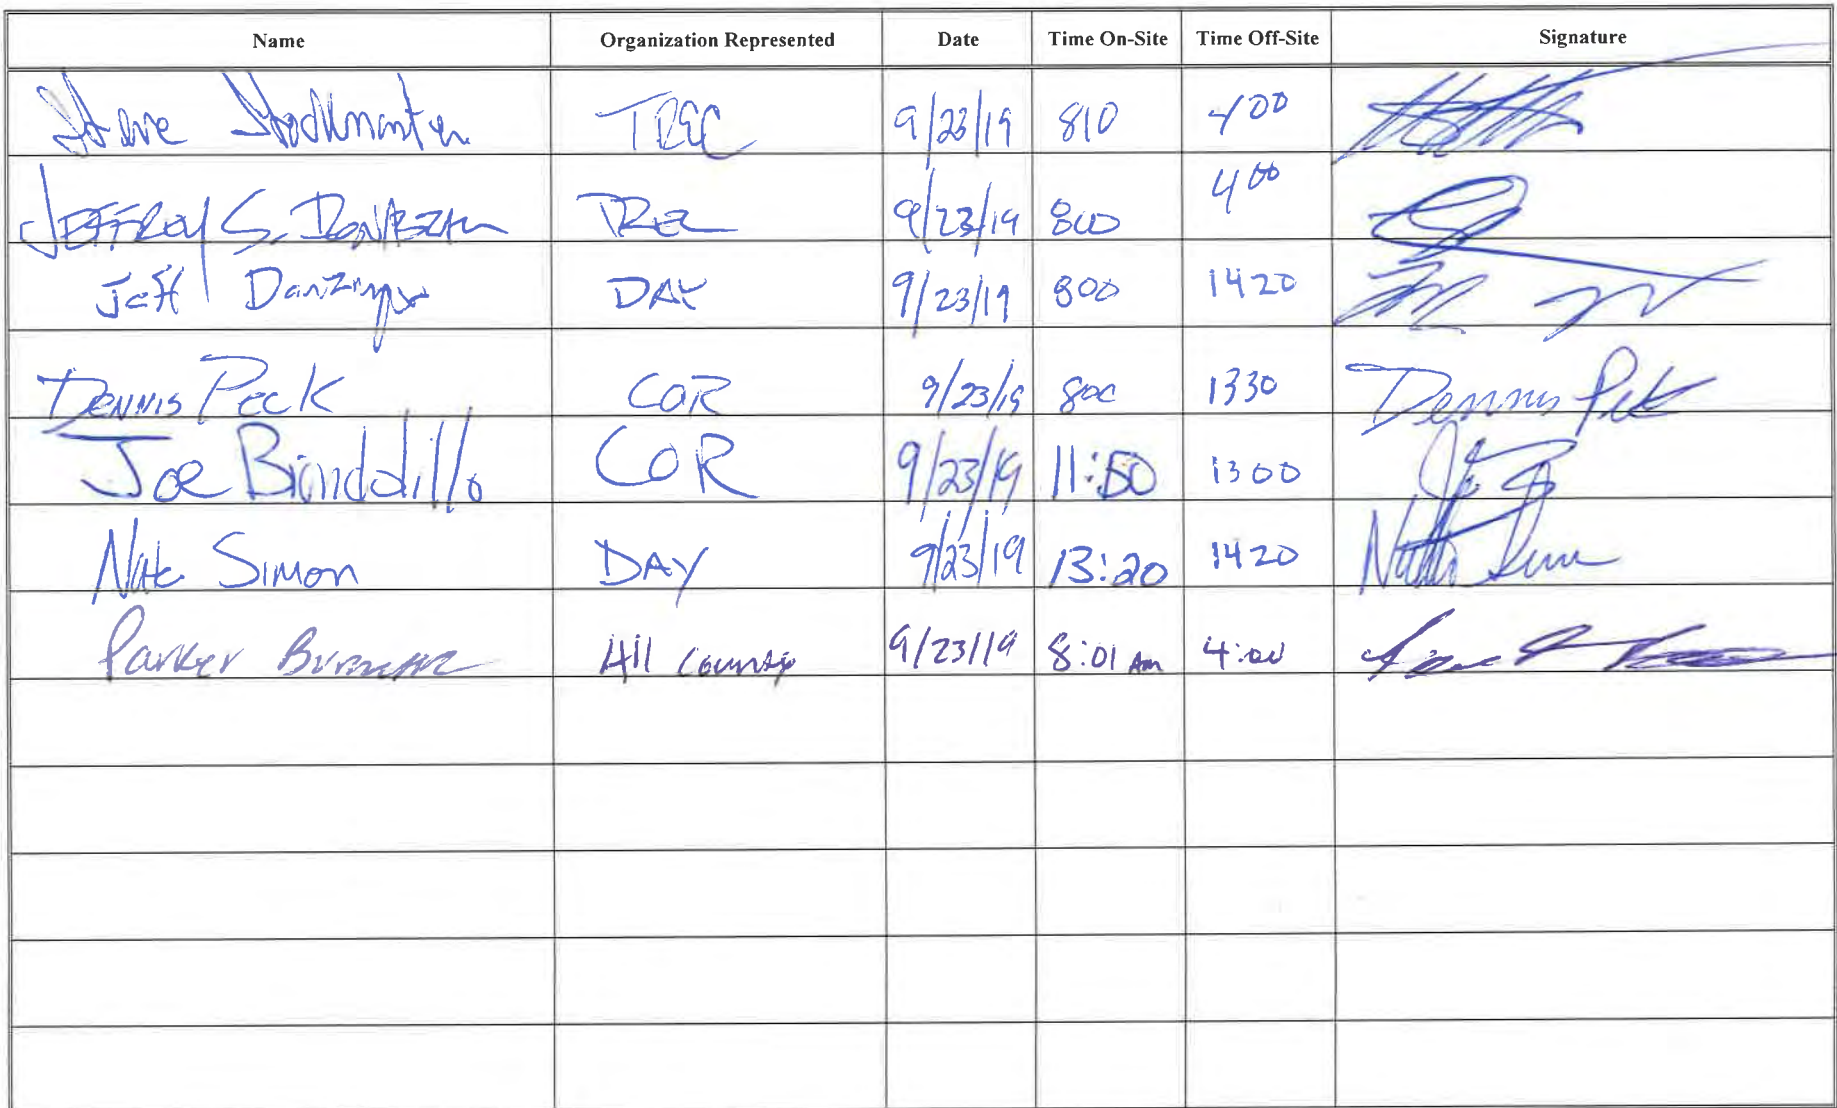 Name Organization Represented Date Time On-Site Time Off-Site Signature
Steve Stockmaster TREC 9/23/19 810 400
JEFFREY S. TREC 9/23/19 800 400
Jeff Danzinger DAY 9/23/19 800 1420
DENNIS PECK COR 9/23/19 800 1330 Dennis Peck
Joe Biondolillo COR 9/23/19 11:50 1300
Nate Simon DAY 9/23/19 13:20 1420
Parker 9/23/19 8:01 Am 4:00